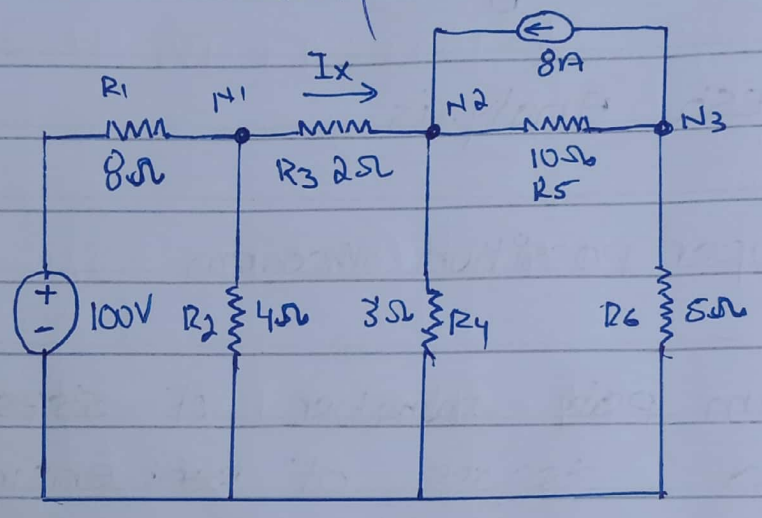 8A
Ix
R1
N1
N2
N3
8Ω
R3 2Ω
10Ω
R5
+
-
100V
R2
4Ω
3Ω
R4
R6
5Ω